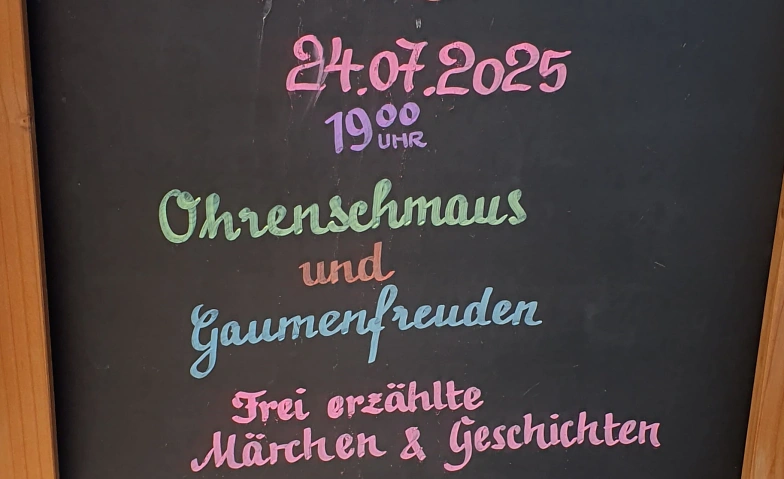 24.07.2025
19⁰⁰ UHR
Ohrenschmaus
und
Gaumenfreuden
Frei erzählte
Märchen & Geschichten